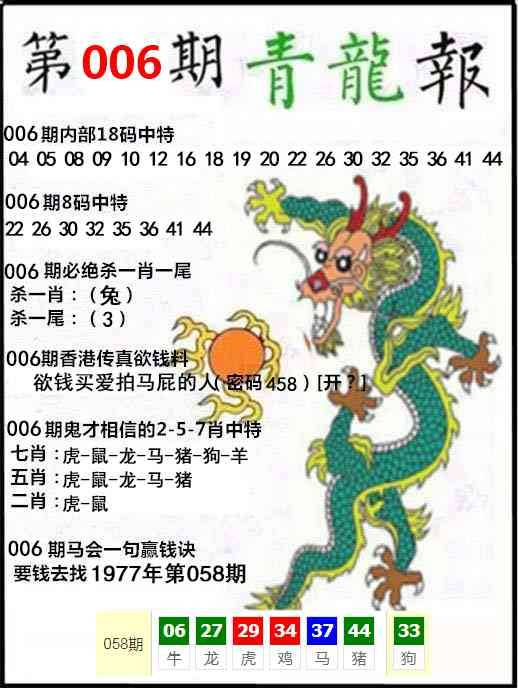 第006期青龍報
006期内部18码中特
04 05 08 09 10 12 16 18 19 20 22 26 30 32 35 36 41 44
006期8码中特
22 26 30 32 35 36 41 44
006 期必绝杀一肖一尾
杀一肖：（兔）
杀一尾：（3）
006期香港传真欲钱料
欲钱买爱拍马屁的人( 密码 458 ) [开？]
006期鬼才相信的2-5-7肖中特
七肖：虎-鼠-龙-马-猪-狗-羊
五肖：虎-鼠-龙-马-猪
二肖：虎-鼠
006 期马会一句赢钱诀
要钱去找 1977年第058期
058期 06 27 29 34 37 44 33
牛 龙 虎 鸡 马 猪 狗